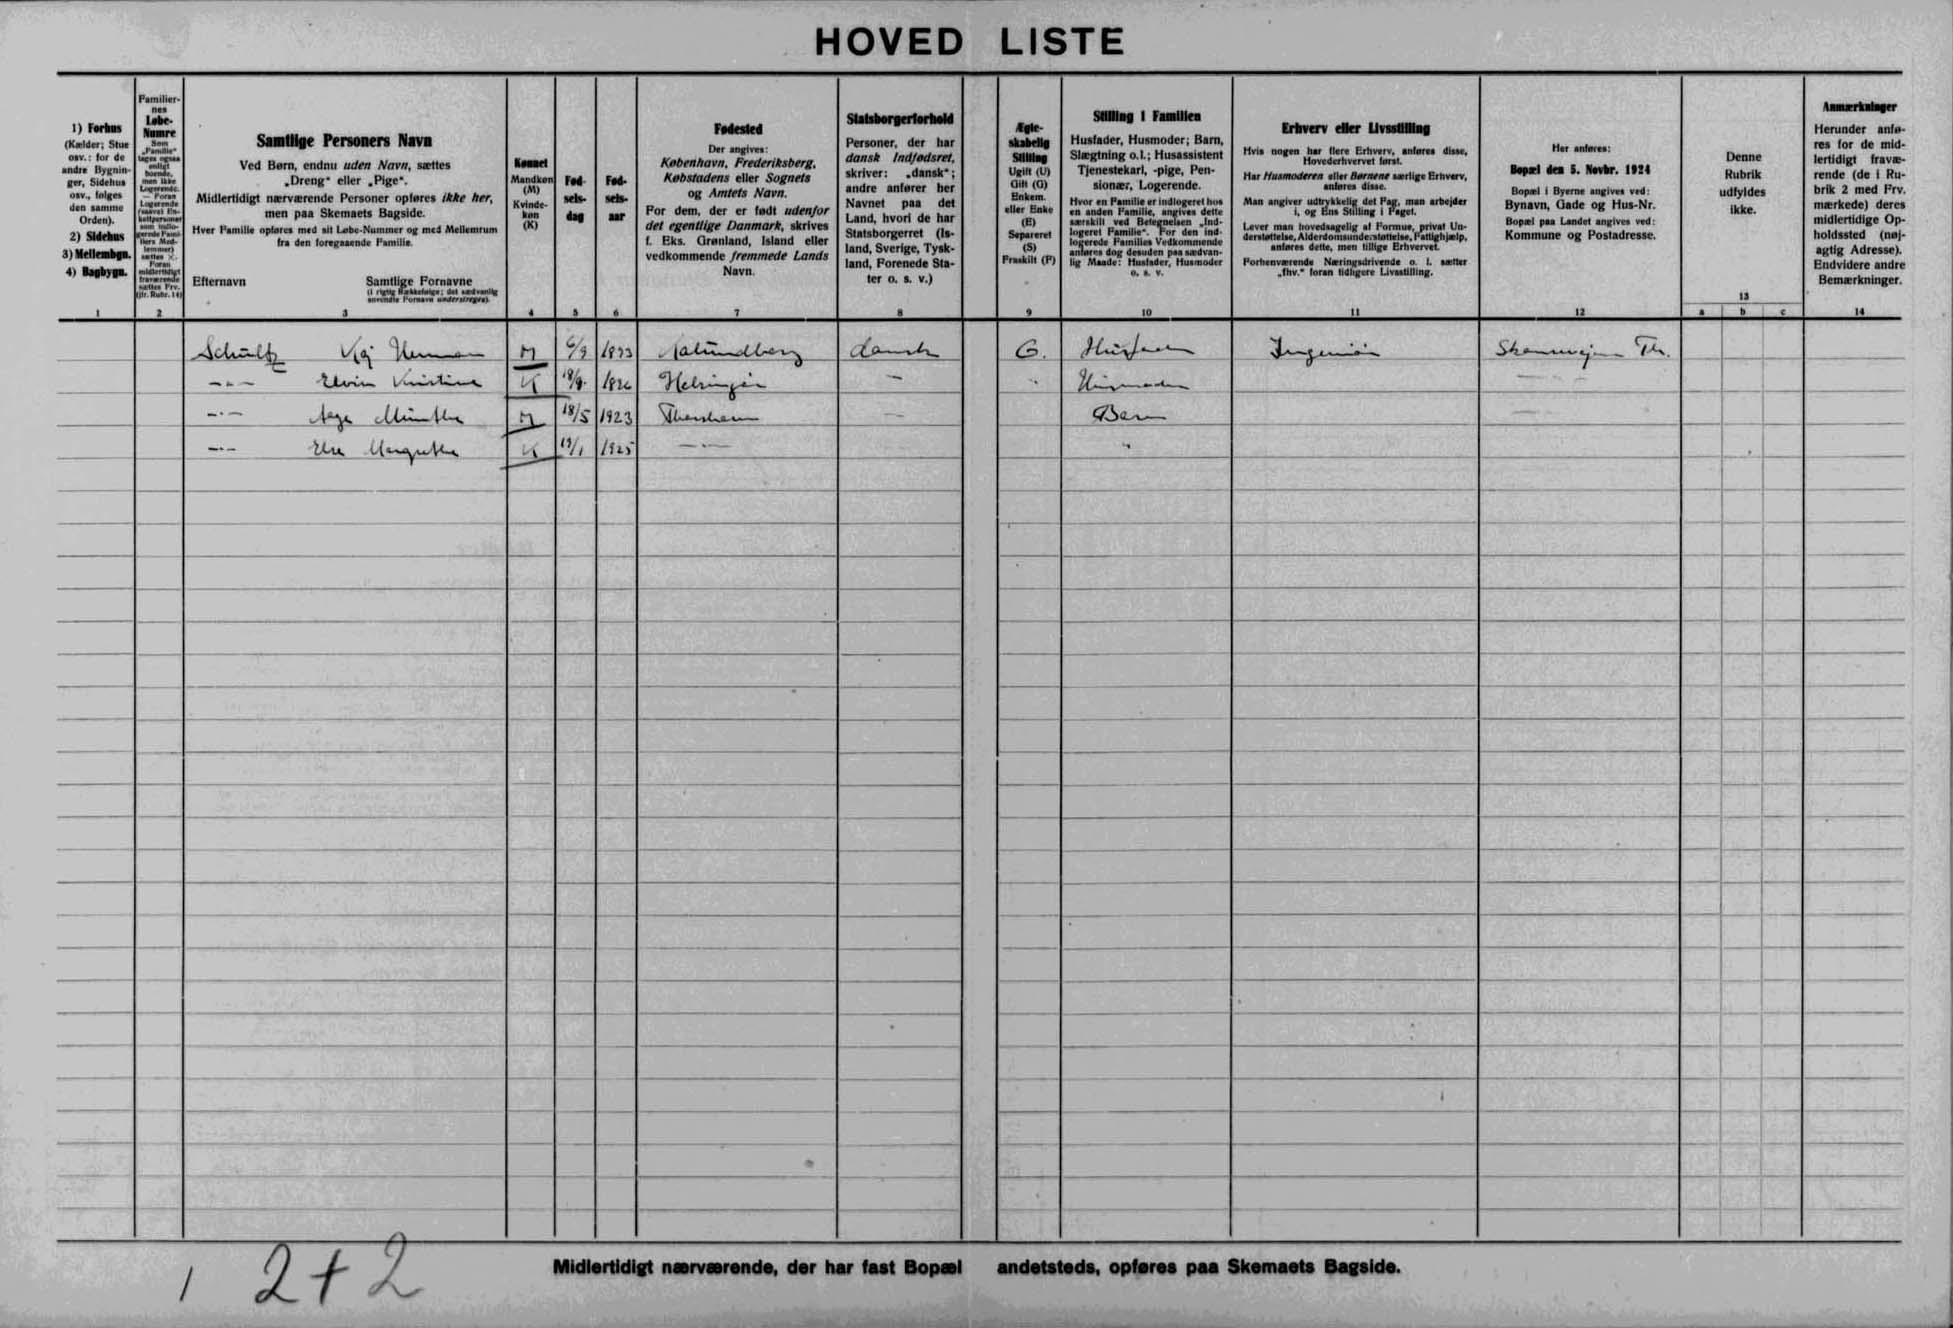 HOVED LISTE
1) Forhus
(Kælder; Stue
osv.: for de
andre Bygnin-
ger, Sidehus
osv., følges
den samme
Orden).
2) Sidehus
3) Mellembgn.
4) Bagbygn.
1
Familier-
nes
Løbe-
Numre
Som
„Familie“
tages ogsaa
enligt
boende,
men ikke
Logerende.
— Foran
Logerende
(saavel En-
keltpersoner
som indlo-
gerede Fami-
liers Med-
lemmer)
sættes ×.
Foran
midlertidigt
fraværende
sættes Frv.
(jfr. Rubr. 14)
2
Samtlige Personers Navn
Ved Børn, endnu uden Navn, sættes
„Dreng“ eller „Pige“.
Midlertidigt nærværende Personer opføres ikke her,
men paa Skemaets Bagside.
Hver Familie opføres med sit Løbe-Nummer og med Mellemrum
fra den foregaaende Familie.
Efternavn Samtlige Fornavne
(i rigtig Rækkefølge; det sædvanlig
anvendte Fornavn understreges).
3
Kønnet
Mandkøn
(M)
Kvinde-
køn
(K)
4
Fød-
sels-
dag
5
Fød-
sels-
aar
6
Fødested
Der angives:
København, Frederiksberg,
Købstadens eller Sognets
og Amtets Navn.
For dem, der er født udenfor
det egentlige Danmark, skrives
f. Eks. Grønland, Island eller
vedkommende fremmede Lands
Navn.
7
Statsborgerforhold
Personer, der har
dansk Indfødsret,
skriver: „dansk“;
andre anfører her
Navnet paa det
Land, hvori de har
Statsborgerret (Is-
land, Sverige, Tysk-
land, Forenede Sta-
ter o. s. v.)
8
Ægte-
skabelig
Stilling
Ugift (U)
Gift (G)
Enkem.
eller Enke
(E)
Separeret
(S)
Fraskilt (F)
9
Stilling i Familien
Husfader, Husmoder; Barn,
Slægtning o.l.; Husassistent
Tjenestekarl, -pige, Pen-
sionær, Logerende.
Hvor en Familie er indlogeret hos
en anden Familie, angives dette
særskilt ved Betegnelsen „Ind-
logeret Familie“. For den ind-
logerede Families Vedkommende
anføres dog desuden paa sædvan-
lig Maade: Husfader, Husmoder
o. s. v.
10
Erhverv eller Livsstilling
Hvis nogen har flere Erhverv, anføres disse,
Hovederhvervet først.
Har Husmoderen eller Børnene særlige Erhverv,
anføres disse.
Man angiver udtrykkelig det Fag, man arbejder
i, og Ens Stilling i Faget.
Lever man hovedsagelig af Formue, privat Un-
derstøttelse, Alderdomsunderstøttelse, Fattighjælp,
anføres dette, men tillige Erhvervet.
Forhenværende Næringsdrivende o. l. sætter
„fhv.“ foran tidligere Livsstilling.
11
Her anføres:
Bopæl den 5. Novbr. 1924
Bopæl i Byerne angives ved:
Bynavn, Gade og Hus-Nr.
Bopæl paa Landet angives ved:
Kommune og Postadresse.
12
Denne
Rubrik
udfyldes
ikke.
13
a b c
Anmærkninger
Herunder anfø-
res for de mid-
lertidigt fravæ-
rende (de i Ru-
brik 2 med Frv.
mærkede) deres
midlertidige Op-
holdssted (nøj-
agtig Adresse).
Endvidere andre
Bemærkninger.
14
Schultz Kaj Herman M 6/9 1893 Kalundborg dansk G. Husfader Ingeniør
—„— Kristine K 1896 Helsingør — „ Husmoder
—„— Aage Münther M 18/5 1923 Thorshavn — Barn
—„— Else Margrethe K 19/1 1925 —„— „
1 2+2
Midlertidigt nærværende, der har fast Bopæl andetsteds, opføres paa Skemaets Bagside.